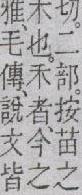 切。二部。按苗之
木也。禾者、今之
雅、毛傳、說文皆